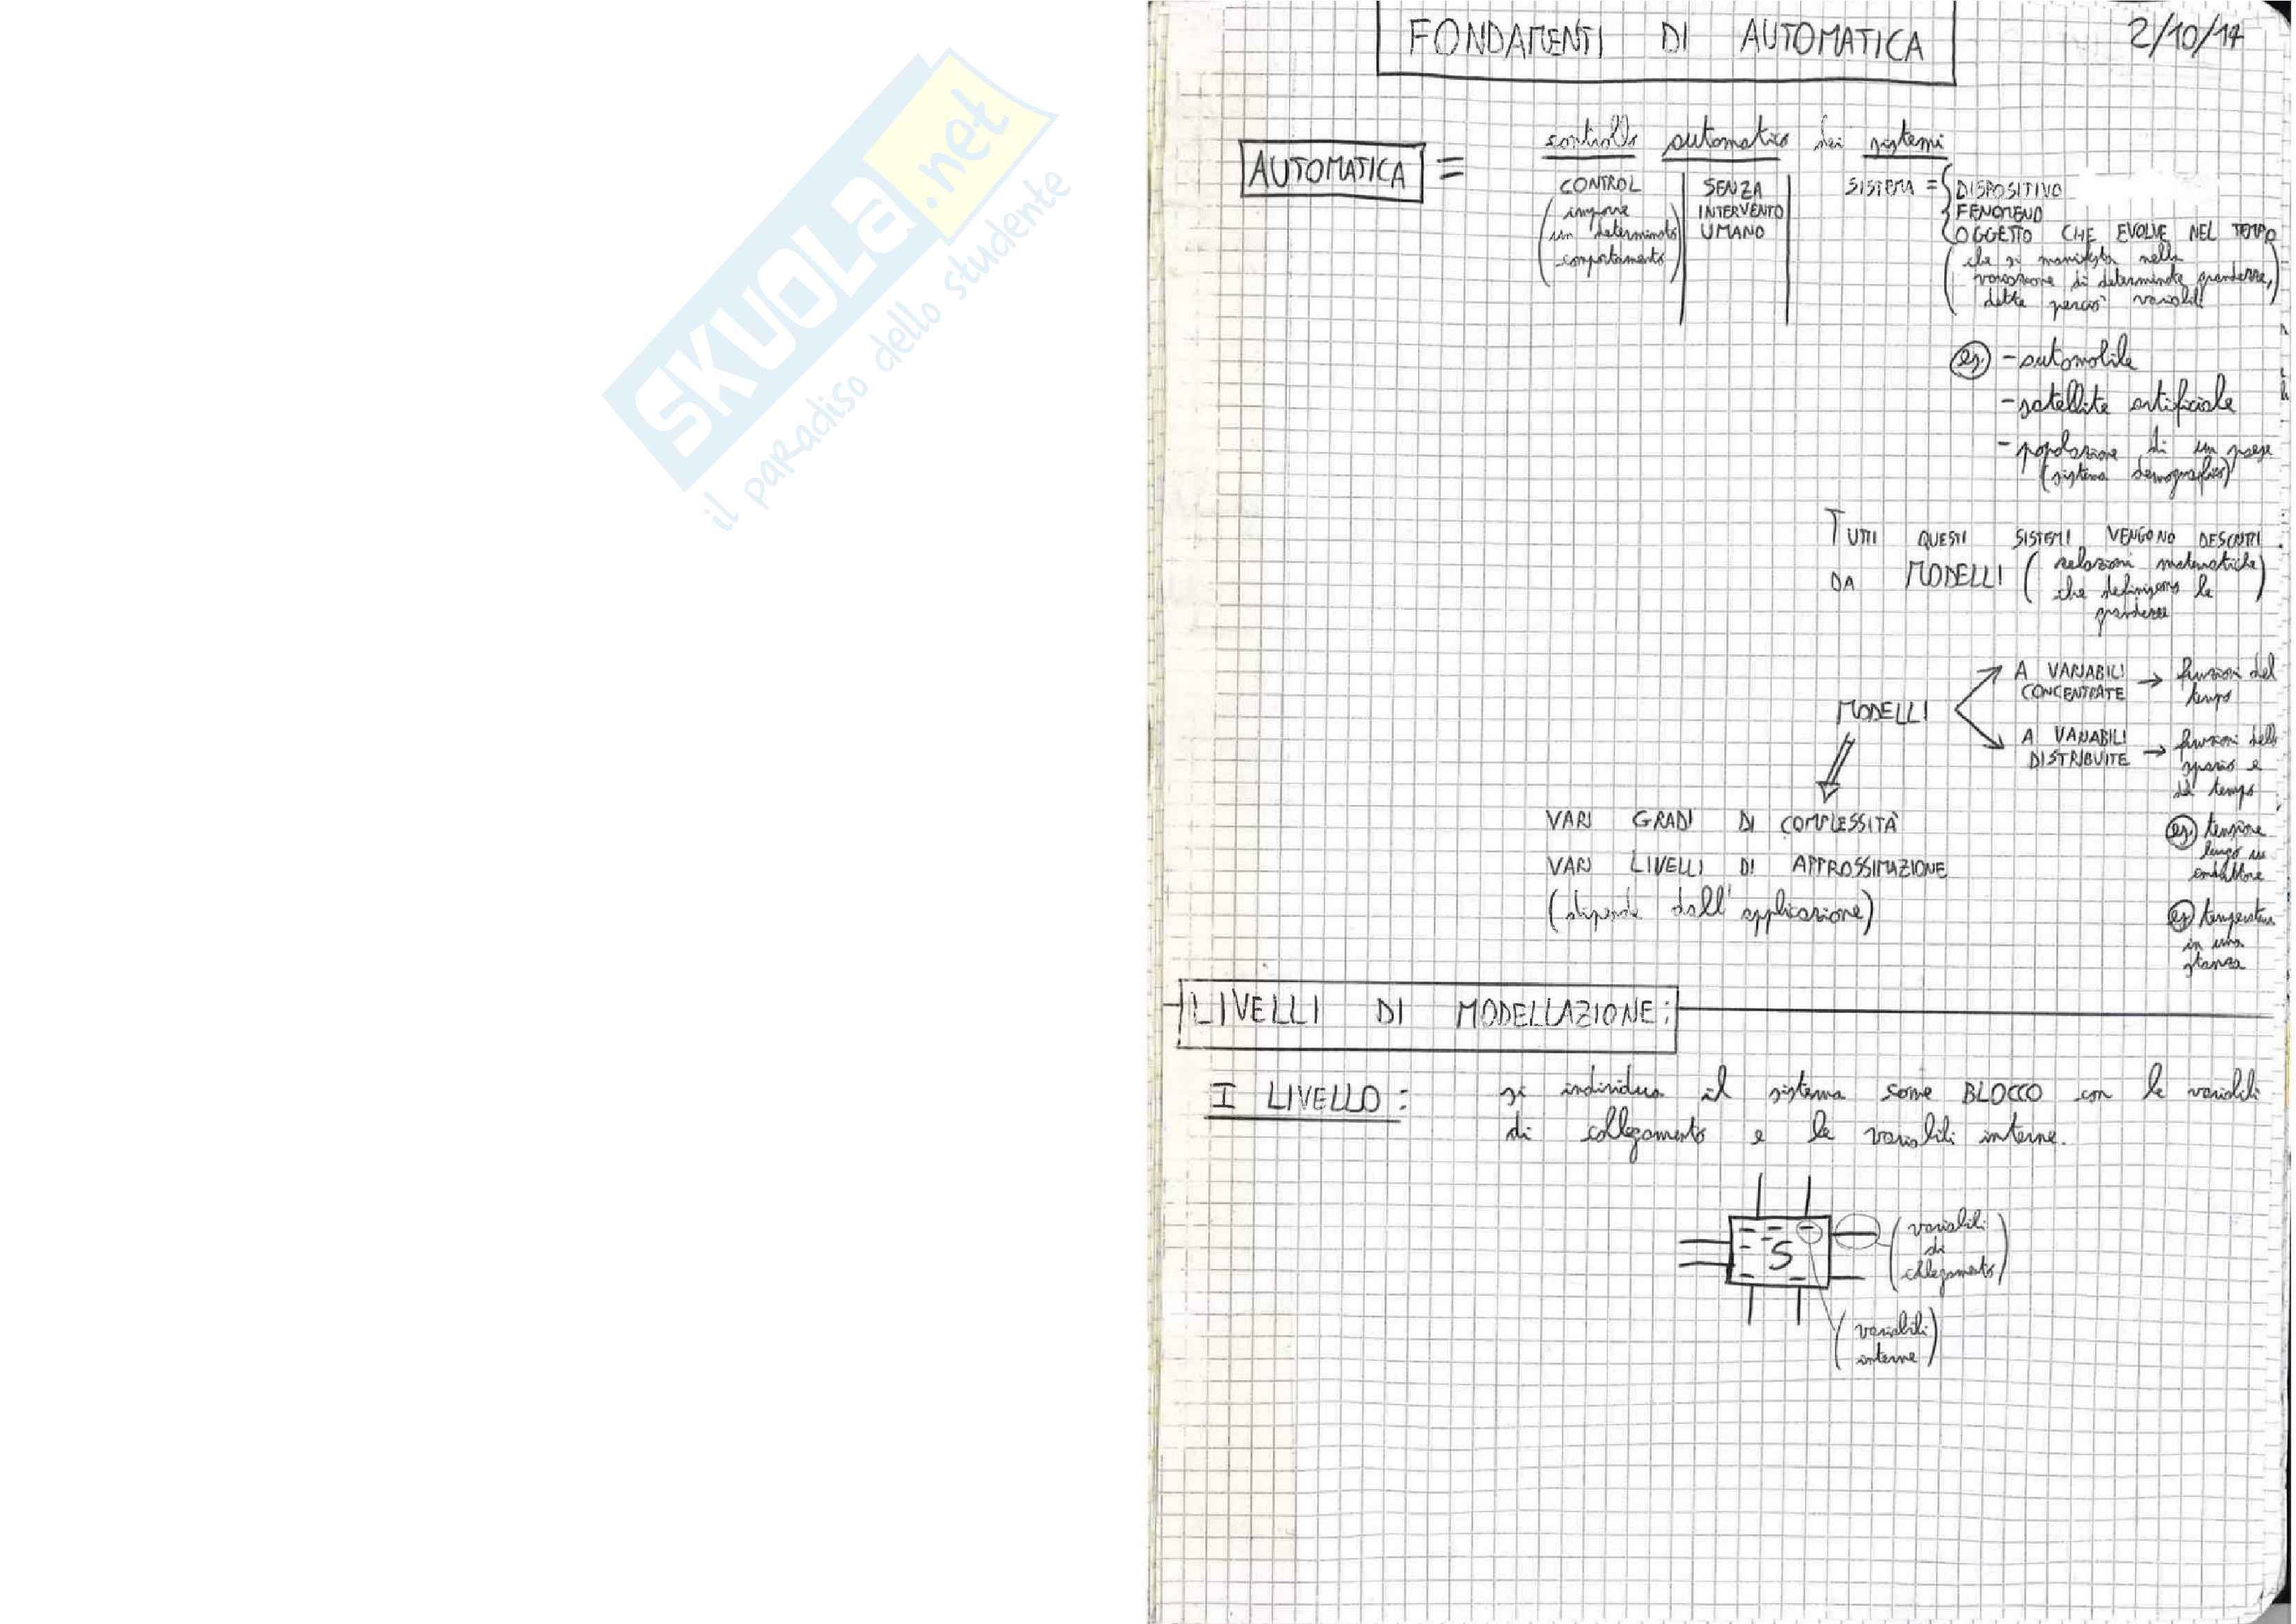 SKUOLA.net
il paradiso dello studente
FONDAMENTI DI AUTOMATICA
2/10/14
AUTOMATICA =
controllo automatico dei sistemi
CONTROL
(impone
un determinato
comportamento)
SENZA
INTERVENTO
UMANO
SISTEMA = { DISPOSITIVO
FENOMENO
OGGETTO CHE EVOLVE NEL TEMPO
(che si manifesta nella
variazione di determinate grandezze,
dette perciò variabili)
es) - automobile
- satellite artificiale
- popolazione di un paese
(sistema demografico)
TUTTI QUESTI SISTEMI VENGONO DESCRITTI
DA MODELLI (relazioni matematiche
che definiscono le
grandezze)
MODELLI
A VARIABILI
CONCENTRATE → funzioni del
tempo
A VARIABILI
DISTRIBUITE → funzioni dello
spazio e
del tempo
es) tensione
lungo un
conduttore
es) temperatura
in una
stanza
VARI GRADI DI COMPLESSITÀ
VARI LIVELLI DI APPROSSIMAZIONE
(dipende dall'applicazione)
LIVELLI DI MODELLAZIONE:
I LIVELLO: si individua il sistema come BLOCCO con le variabili
di collegamento e le variabili interne.
S
(variabili
di
collegamento)
(variabili
interne)